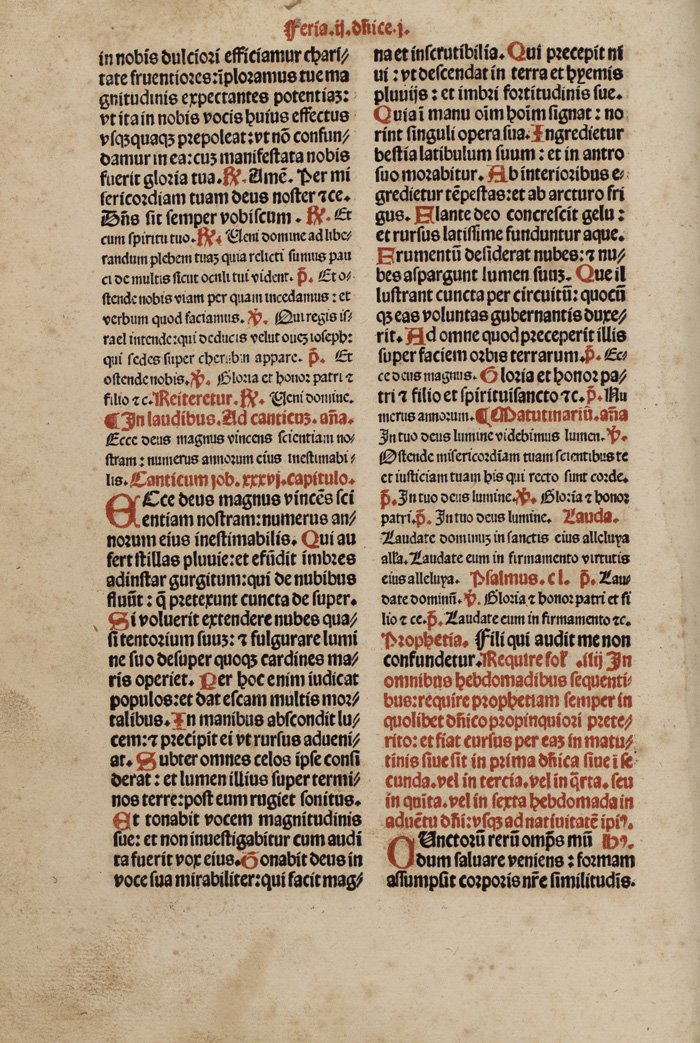 Feria.ij.dñice.j.
in nobis dulciori efficiamur chari/
tate fruentiores:iploramus tue ma
gnitudinis expectantes potentiaz:
vt ita in nobis vocis huius effectus
vsqzquaqz prepoleat:vt nõ confun/
damur in ea:cuz manifestata nobis
fuerit gloria tua.℟. Amẽ. Per mi
sericordiam tuam deus noster ⁊ce.
Dñs sit semper vobiscum . ℟. Et
cum spiritu tuo.℟. Ueni domine ad libe/
randum plebem tuaz quia relicti sumus pau
ci de multis sicut oculi tui vident. p̃. Et o/
stende nobis viam per quam incedamus : et
verbum quod faciamus. ℣. Qui regis is/
rael intende:qui deducis velut ouez ioseph:
qui sedes super cherubin appare. p̃. Et
ostende nobis.℣. Gloria et honor patri ⁊
filio ⁊ c.Reiteretur.℟. Ueni domine.
¶In laudibus. Ad canticuz. aña.
Ecce deus magnus vincens scientiam no/
stram : numerus annorum eius inestimabi /
lis. Canticum job. xxxvj.capitulo.
ECce deus magnus vincẽs sci
entiam nostram:numerus an/
norum eius inestimabilis. Qui au
fert stillas pluuie:et efũdit imbres
adinstar gurgitum:qui de nubibus
fluũt : q̃ pretexunt cuncta de super.
Si voluerit extendere nubes qua/
si tentorium suuz: ⁊ fulgurare lumi
ne suo desuper quoqz cardines ma/
ris operiet. Per hoc enim iudicat
populos:et dat escam multis mor/
talibus. In manibus abscondit lu/
cem:⁊ precipit ei vt rursus adueni/
at. Subter omnes celos ipse consi
derat : et lumen illius super termi/
nos terre:post eum rugiet sonitus.
Et tonabit vocem magnitudinis
sue: et non inuestigabitur cum audi
ta fuerit vox eius.Gonabit deus in
voce sua mirabiliter:qui facit mag/
na et inscrutibilia. Qui precepit ni
ui : vt descendat in terra et hyemis
pluuijs : et imbri fortitudinis sue.
Qui aĩ manu oĩm hoĩm signat : no
rint singuli opera sua. Ingredietur
bestia latibulum suum : et in antro
suo morabitur. Ab interioribus e/
gredietur tẽpestas:et ab arcturo fri
gus. Flante deo concrescit gelu :
et rursus latissime funduntur aque.
Frumentũ desiderat nubes: ⁊ nu/
bes aspargunt lumen suuz. Que il
lustrant cuncta per circuitũ: quocũ
qz eas voluntas gubernantis duxe/
rit. Ad omne quod preceperit illis
super faciem orbis terrarum.p̃. Ec/
ce deus magnus. Gloria et honor pa/
tri ⁊ filio et spirituisancto ⁊c.p̃. Nu
merus annorum.¶Matutinariũ.aña
In tuo deus lumine videbimus lumen.℣.
Ostende misericordiam tuam scientibus te
et iusticiam tuam his qui recto sunt corde.
p̃.In tuo deus lumine.℣. Gloria ⁊ honor
patri.p̃. In tuo deus lumine. Lauda.
Laudate dominuz in sanctis eius alleluya
alła.Laudate eum in firmamento virtutis
eius alleluya. Psalmus. c l. p̃. Lau/
date dominũ.℣. Gloria ⁊ honor patri et fi
lio ⁊ ce.p̃. Laudate eum in firmamento ⁊c.
Prophetia. Fili qui audit me non
confundetur.Require fol̃ .iiij In
omnibus hebdomadibus sequenti/
bus:require prophetiam semper in
quolibet dñico propinquiori prete/
rito:et fiat cursus per eaz in matu/
tinis siue sit in prima dñica siue ĩ se
cunda.vel in tercia.vel in q̃rta. seu
in quĩta.vel in sexta hebdomada in
aduẽtu dñi:vsqz ad natiuitatẽ ipĩꝰ.
CUnctorũ rerũ omps mũ hỹ.
dum saluare veniens : formam
assumpsit corporis nr̃e similitudĩs.